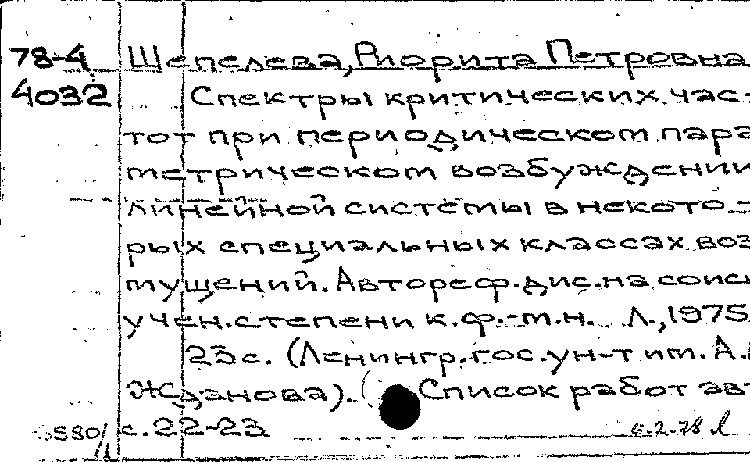 78-4 Шепелева, Риорита Петровна
4032 Спектры критических час-
тот при периодическом пара
метрическом возбуждении
линейной системы в некото-
рых специальных классах воз
мущений. Автореф. дис. на соиск
учен. степени к.ф.-м.н. Л., 1975
23с. (Ленингр. гос. ун-т им. А.
Жданова). Список работ авт
с. 22-23